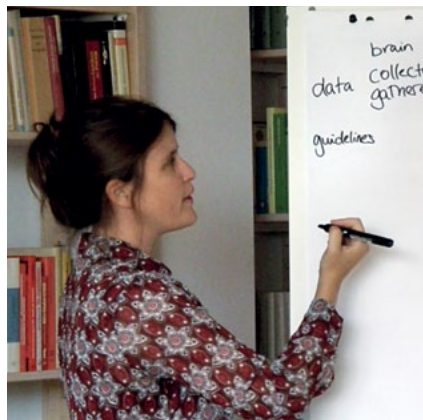 brain
data collect
gathere
guidelines